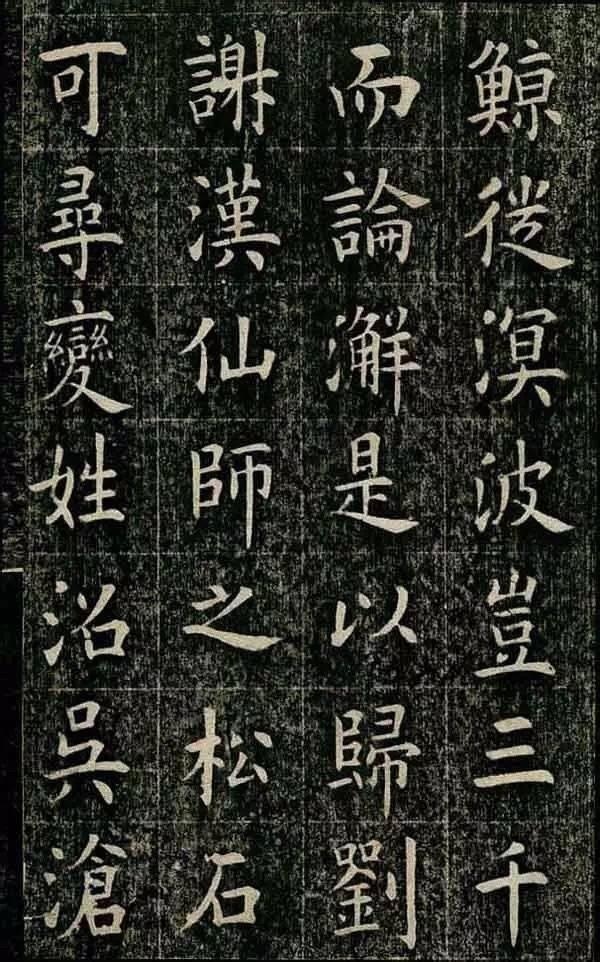 鯨徙溟波豈三千
而論澥是以歸劉
謝漢仙師之松石
可尋變姓沼吳滄